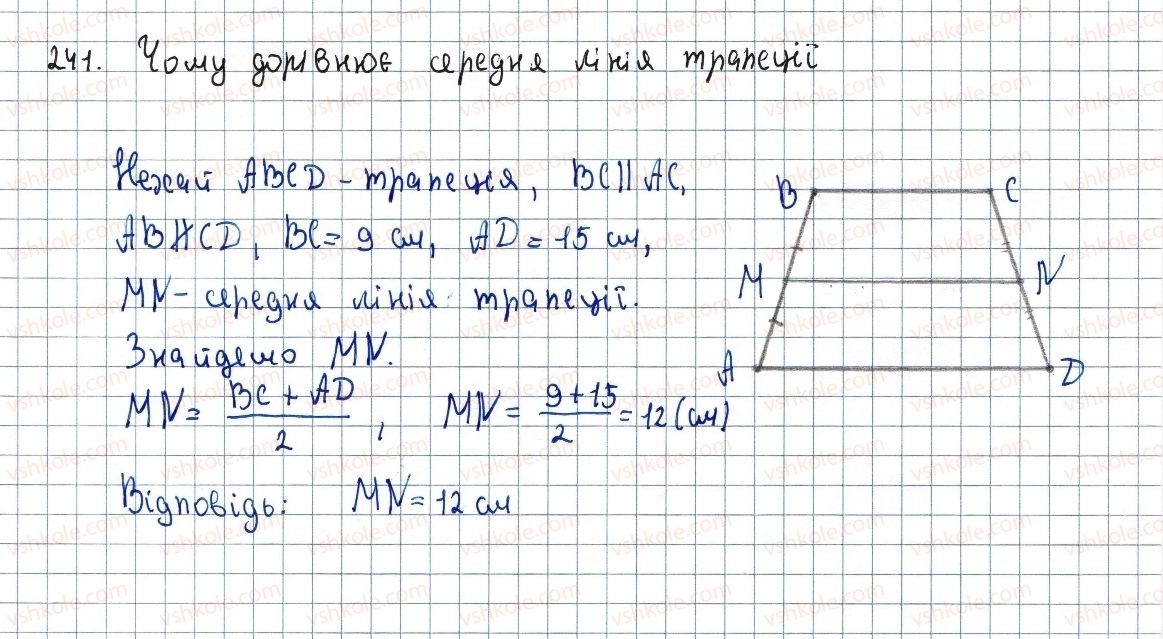 241. Чому дорівнює середня лінія трапеції
Нехай ABCD - трапеція, BC || AC,
AB ∦ CD, BC = 9 см, AD = 15 см,
MN - середня лінія трапеції.
Знайдемо MN.
MN = (BC + AD)/2, MN = (9 + 15)/2 = 12 (см)
Відповідь: MN = 12 см
B C
M N
A D
vshkole.com